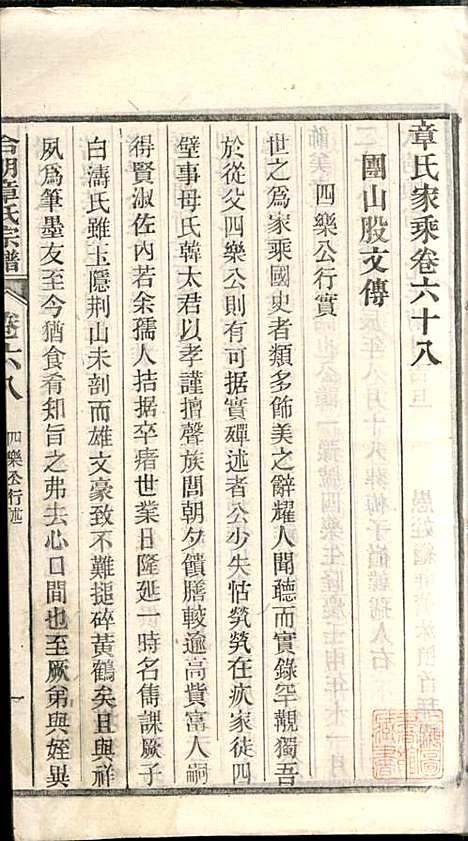 章氏家乘卷六十八
團山股文傳
四樂公行實
世之爲家乘國史者類多飾美之辭耀人聞聽而實錄罕觀獨吾
於從父四樂公則有可据實殫述者公少失怙煢煢在疚家徒四
壁事母氏韓太君以孝謹擅聲族閭朝夕饋膳較逾高貲富人嗣
得賢淑佐內若余孺人拮据卒瘏世業日隆延一時名雋課厥子
白濤氏雖玉隱荆山未剖而雄文豪致不難搥碎黃鶴矣且與祥
夙爲筆墨友至今猶食肴知旨之弗去心口間也至厥弟與姪與
合明章氏宗譜
卷六八
四樂公行述
一